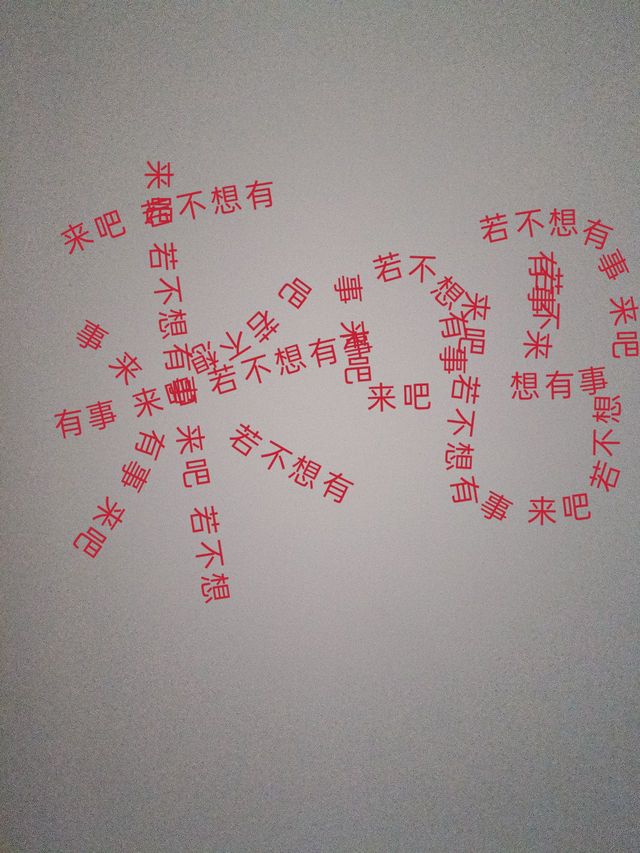 来吧 若不想有
事 来
吧 若不想
有事 来吧 若不想有事
来吧 若不想有事 来吧 若不想
有事 来吧
若不想有
事 来吧
若不想有事
来吧
若不想有事 来吧
若不
有事 来
想有事
来吧 若不想有事 来吧 若不想